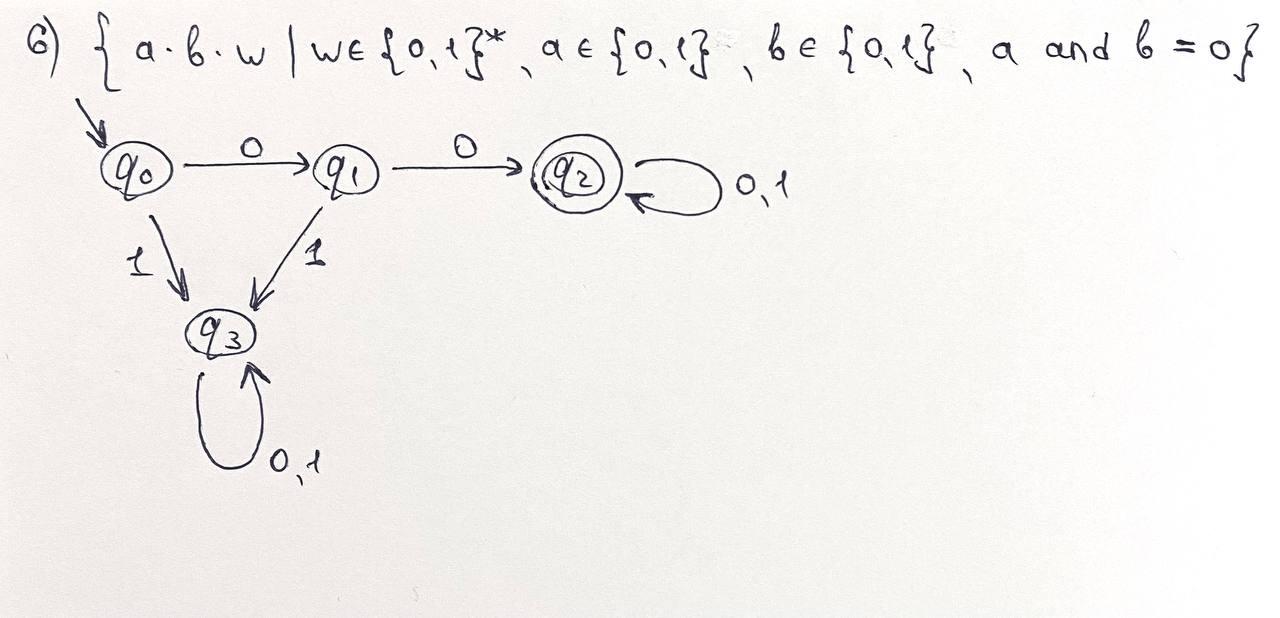 6) { a · b · w | w ∈ {0,1}*, a ∈ {0,1}, b ∈ {0,1}, a and b = 0}
q0 0 q1 0 q2 0,1
1 1
q3
0,1